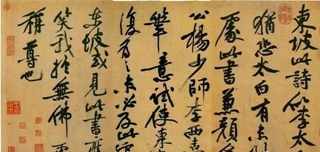 東坡此詩似李太
猶恐太白有未到
處此書兼顏
公楊少師李西臺
筆意試使東
復為之未必及此
東坡或見此書應
笑我於無佛處
稱尊也